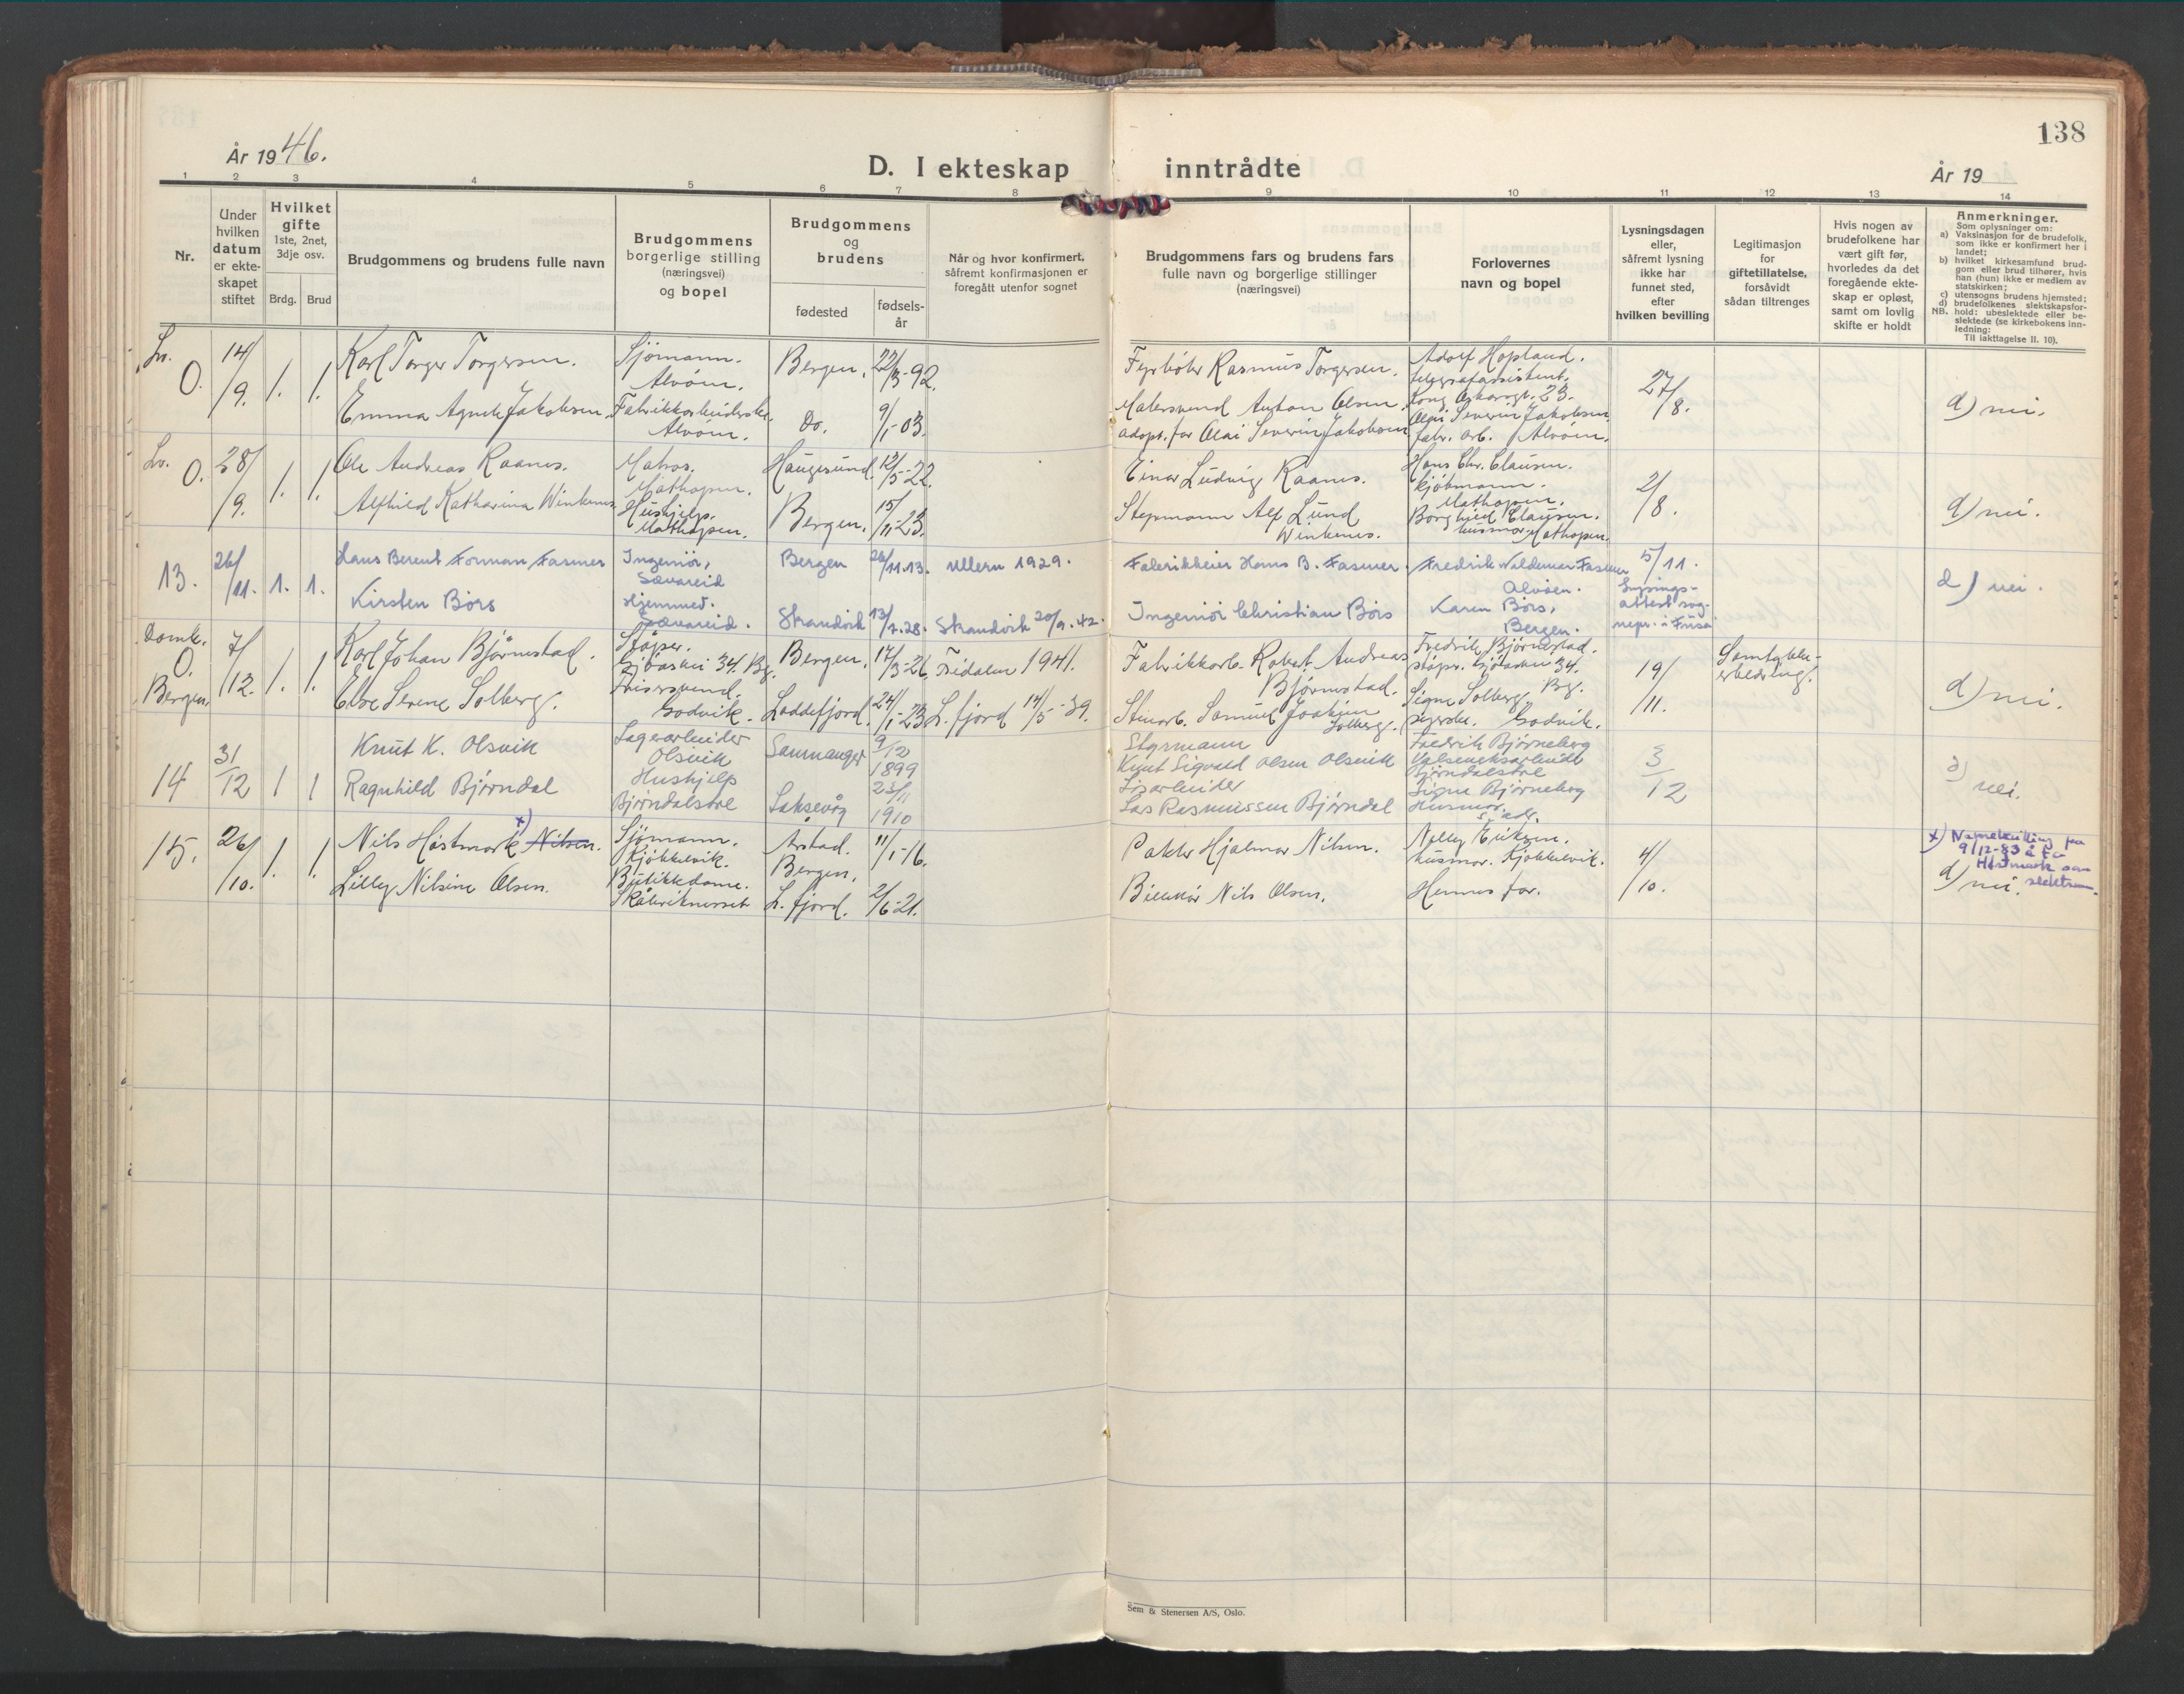 138
År 1946.
D. I ekteskap inntrådte
År 19
1 2 3 4 5 6 7 8 9 10 11 12 13 14
Nr.
Under
hvilken
datum
er ekte-
skapet
stiftet
Hvilket
gifte
1ste, 2net,
3dje osv.
Brdg. Brud
Brudgommens og brudens fulle navn
Brudgommens
borgerlige stilling
(næringsvei)
og bopel
Brudgommens
og
brudens
fødested
fødsels-
år
Når og hvor konfirmert,
såfremt konfirmasjonen er
foregått utenfor sognet
Brudgommens fars og brudens fars
fulle navn og borgerlige stillinger
(næringsvei)
Forlovernes
navn og bopel
Lysningsdagen
eller,
såfremt lysning
ikke har
funnet sted,
efter
hvilken bevilling
Legitimasjon
for
giftetillatelse,
forsåvidt
sådan tiltrenges
Hvis nogen av
brudefolkene har
vært gift før,
hvorledes da det
foregående ekte-
skap er opløst,
samt om lovlig
skifte er holdt
Anmerkninger.
Som oplysninger om:
a) Vaksinasjon for de brudefolk,
som ikke er konfirmert her i
landet;
b) hvilket kirkesamfund brud-
gom eller brud tilhører, hvis
han (hun) ikke er medlem av
statskirken;
c) utensogns brudens hjemsted;
d) brudefolkenes slektskapsfor-
NB. hold: ubeslektede eller be-
slektede (se kirkebokens inn-
ledning:
Til iakttagelse II. 10).
O. 14/9. 1. 1.
Karl Torger Torgersen.
Emma Agnete Jakobsen.
Sjömann.
Alvöen.
Fabrikkarbeiderske.
Alvöen.
Bergen. 22/3-92.
Do. 9/1-03.
Fyrböter Rasmus Torgersen.
Malersvend Anton Olsen.
adopt. far Olai Severin Jakobsen
Adolf Hopland.
telegrafassistent.
Kong Oskarsgt. 23.
Olai Severin Jakobsen.
fabr. arb. Alvöen.
27/8.
d) nei.
O. 28/9. 1. 1.
Ole Andreas Raanes.
Alfhild Katharina Winkenes.
Matros.
Mathopen.
Hushjelp.
Mathopen.
Haugesund. 12/5-22.
Bergen. 15/11-23.
Einar Ludvig Raanes.
Stepmann Alf Lund
Winkenes.
Hans Chr. Clausen.
kjöbmann.
Mathopen.
Borghild Clausen.
husmor. Mathopen.
2/8.
d) nei.
13. 26/11. 1. 1.
Hans Berent Forman Fasmer
Kirsten Börs
Ingeniör,
Sævareid
Hjemmev.
Sævareid.
Bergen 26/11.13. Ullern 1929.
Strandvik 13/7.28. Strandvik 20/9.42.
Fabrikkeier Hans B. Fasmer.
Ingeniör Christian Börs
Fredrik Waldemar Fasmer
Alvöen.
Karen Börs,
Bergen.
5/11.
Lysnings-
attest sog-
nepr. i Fusa
d) nei.
Domk.
O.
Bergen. 7/12. 1. 1.
Karl Johan Björnestad.
Else Serene Solberg.
Stöper.
34. Bg.
Frisörsvend.
Godvik.
Bergen. 17/3-26. Fridalen 1941.
Loddefjord. 24/1-23 L. fjord 14/5-39.
Fabrikkarb. Robert Andreas
Björnestad.
Stenarb. Samuel Joakim
Solberg.
Fredrik Björnestad.
stöper. 34.
Bg.
Signe Solberg
syerske. Godvik.
19/11.
Samtykke-
erklæring.
d) nei.
14 31/12 1 1
Knut K. Olsvik
Ragnhild Bjørndal
Lagerarbeider
Olsvik
Hushjelp
Bjørndalstræ
Samnanger 9/12 1899
Laksevåg 23/11 1910
Styrmann
Knut Sigvald Olsen Olsvik
Lars Rasmussen Bjørndal
Fredrik Bjørneberg
Bjørndalstræ
Signe Bjørneberg
Husmor.
s. adr.
3/12
d) nei.
15. 26/10. 1. 1.
Nils Höstmark x) Nilsen.
Lilly Nilsine Olsen.
Sjömann.
Kjökkelvik.
Butikkdame.
Skålviknesset
Årstad.
Bergen. 11/1-16.
L. fjord. 2/6-21.
Pakker Hjalmar Nilsen.
Nils Olsen.
Nelly Eriksen.
husmor. Kjökkelvik.
Hennes far.
4/10.
x) Navnebevilling fra
9/12-83 å ta
Höstmark som
slektsn.
d) nei.
Sem & Stenersen A/S, Oslo.